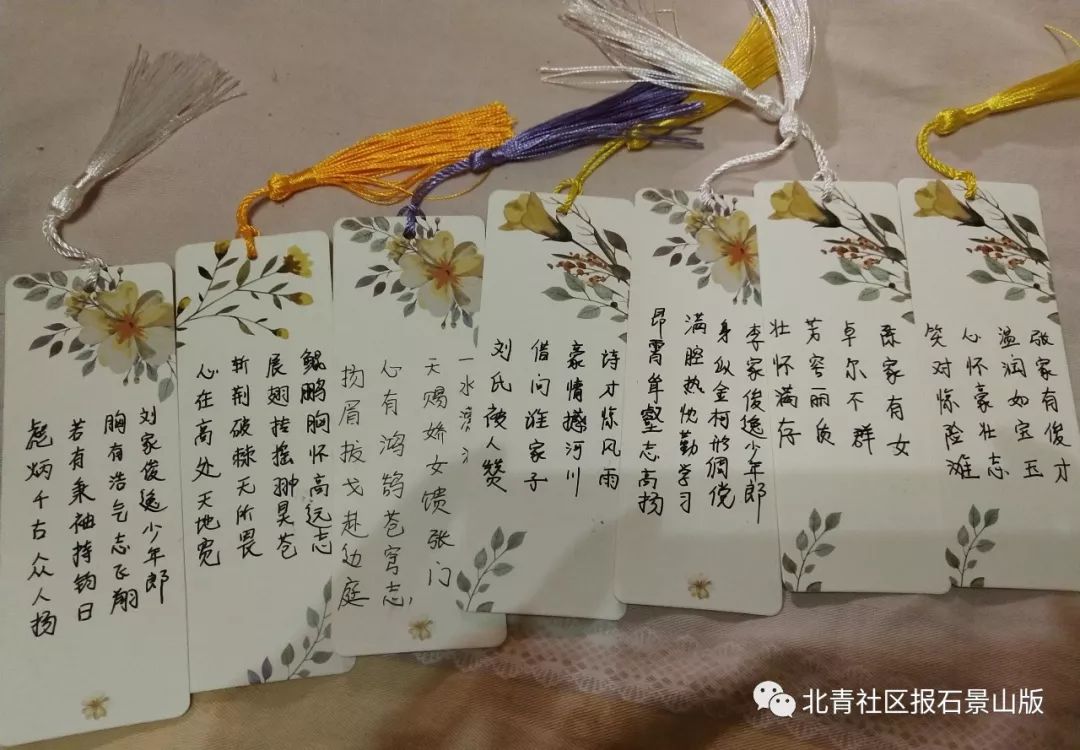 刘家俊逸少年郎
胸有浩气志飞翔
若有秉袖持钧日
彪炳千古众人扬
鲲鹏胸怀高远志
展翅扶摇翀昊苍
斩荆破棘无所畏
心在高处天地宽
一水
天赐娇女馈张门
心有鸿鹄苍穹志
扬眉拔戈赴边庭
诗才惊风雨
豪情撼河川
借问谁家子
刘氏被人赞
李家俊逸少年郎
身似金柯形倜傥
满腔热忱勤学习
昂霄耸壑志高扬
陈家有女
卓尔不群
芳容丽质
壮怀满存
张家有俊才
温润如宝玉
心怀豪壮志
笑对惊险难
北青社区报石景山版